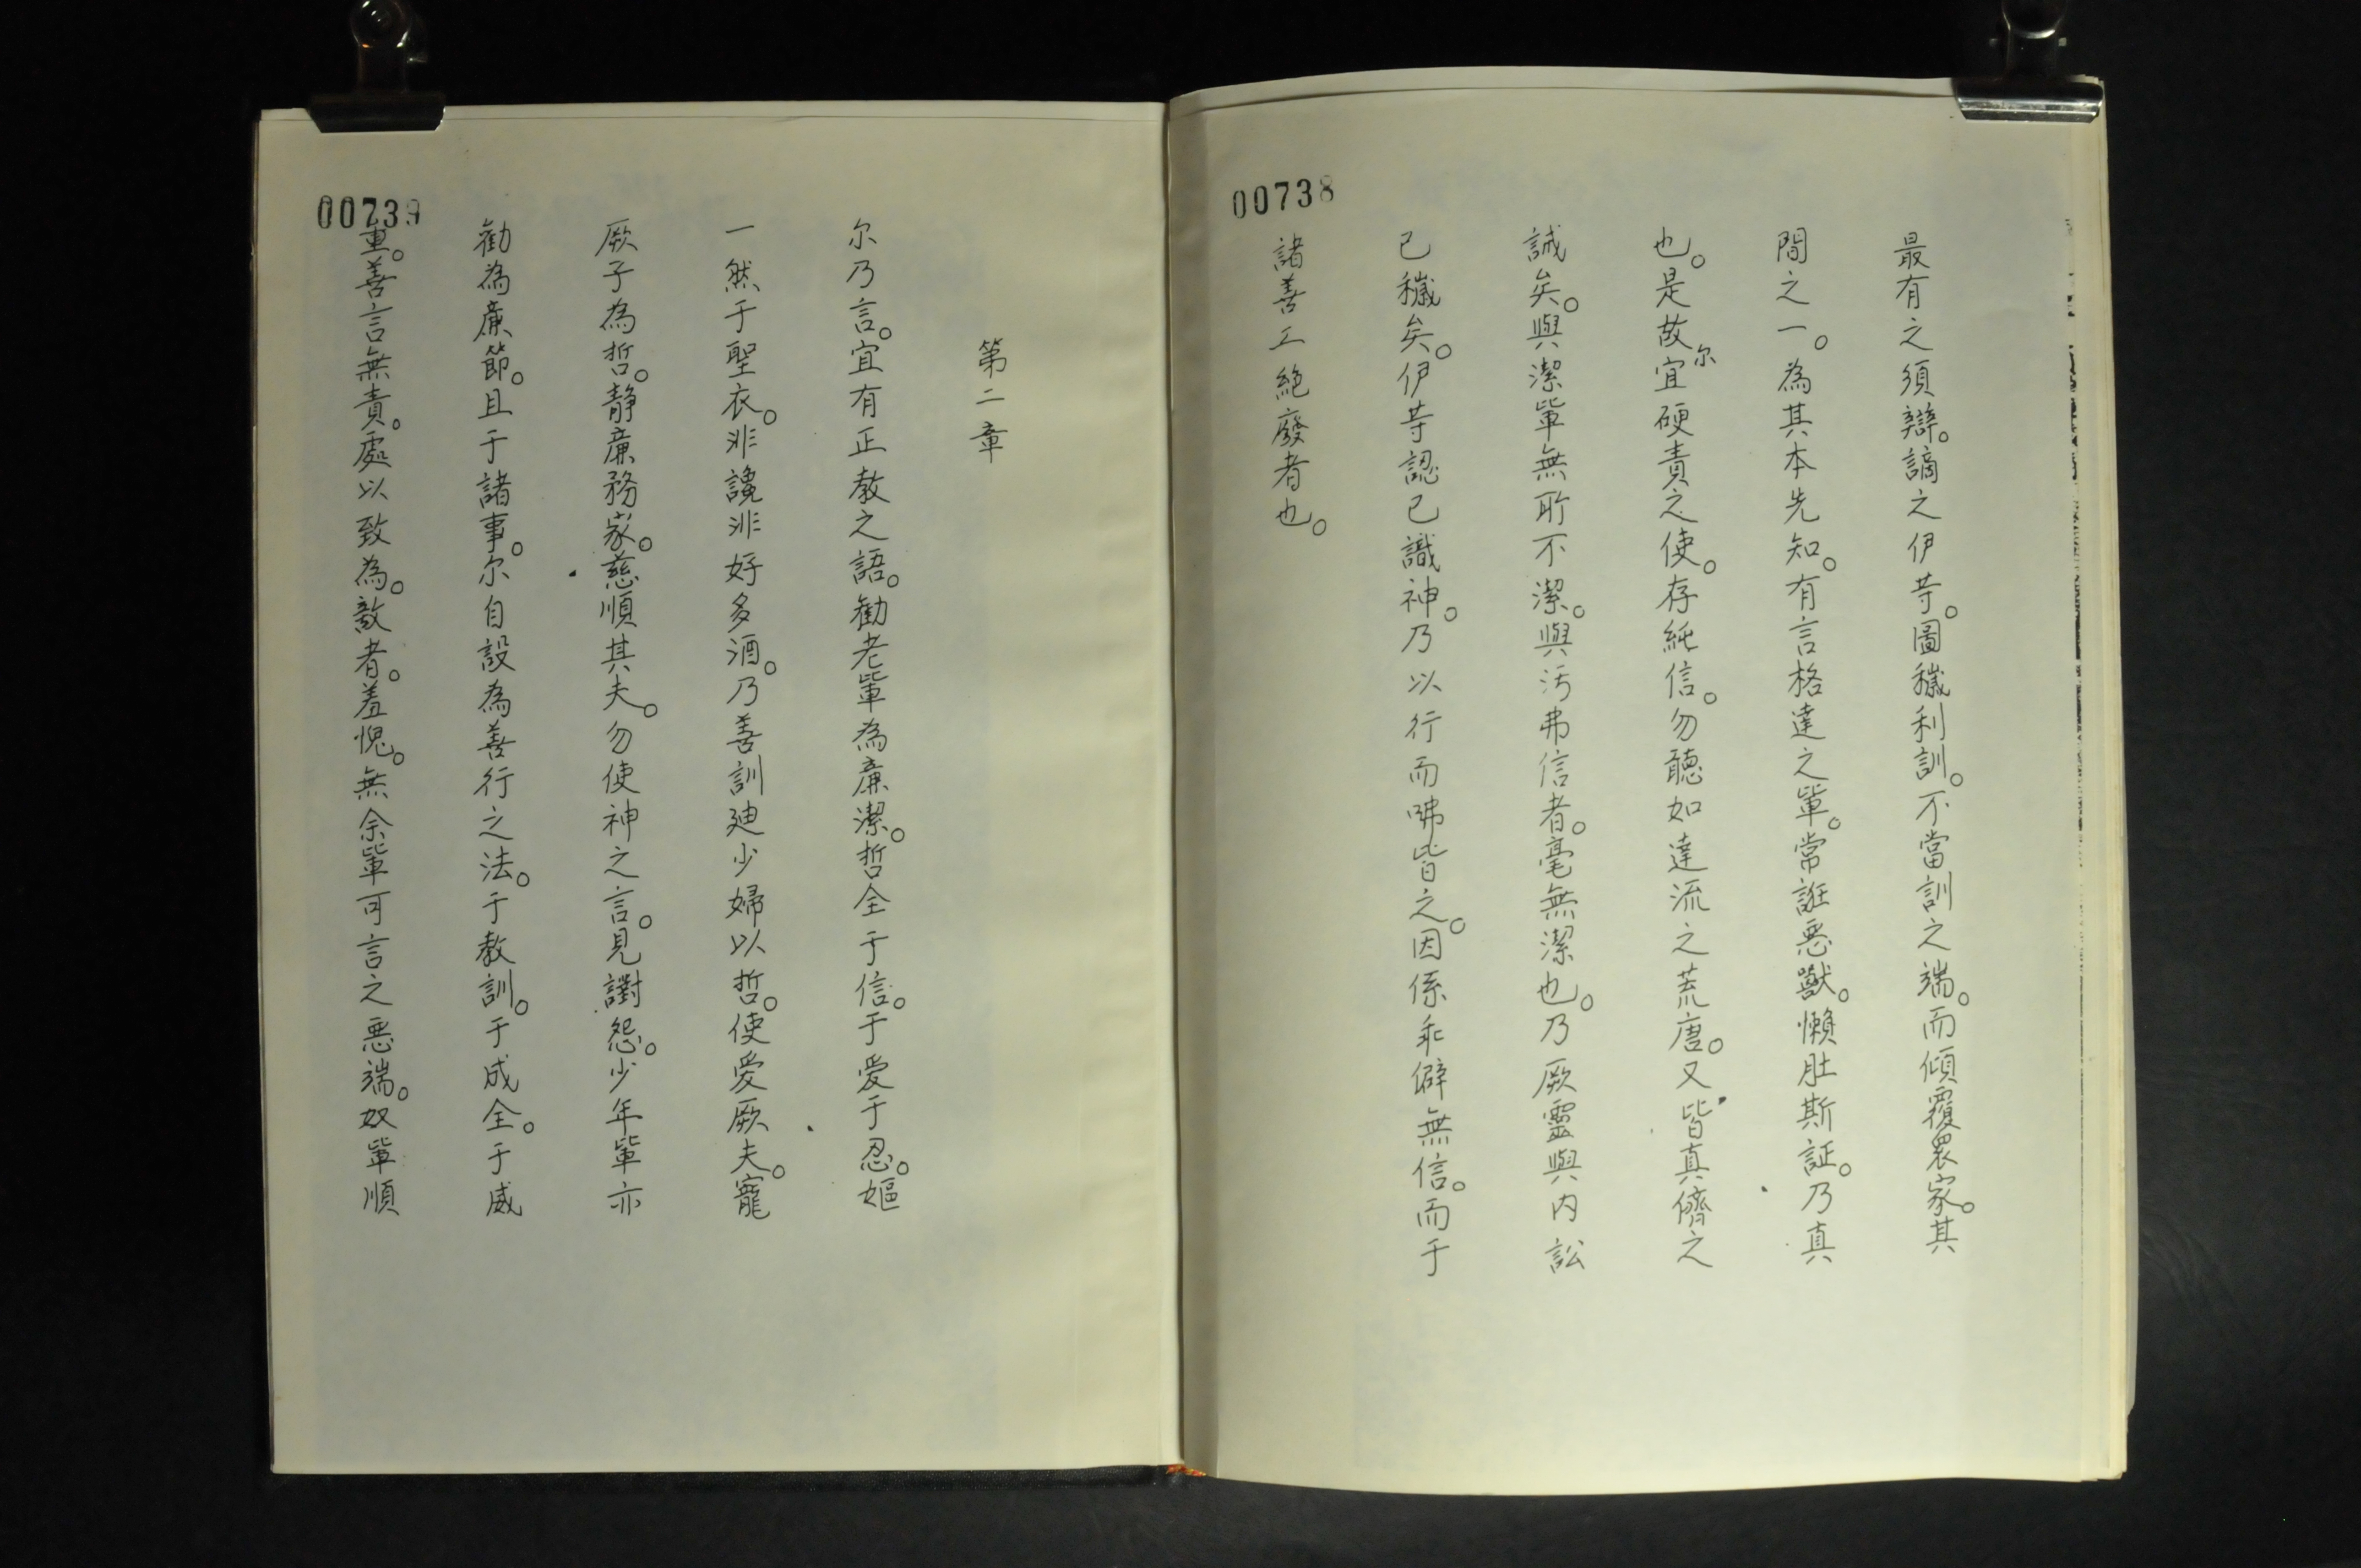 00738
最有之須辯。謫之伊䓁。圖穢利訓。不當訓之端。而傾覆衆家。其
間之一。為其本先知。有言格達之軰。常誑惡獸。懶肚斯証。乃真
也。是故尔宜硬責之。使存純信。勿聽如達流之荒唐。又皆真儕之
誡矣。與潔軰無所不潔。與污弗信者。毫無潔也。乃厥靈與内訟
已穢矣。伊䓁認已識神。乃以行而咈皆之。因係乖僻無信。而于
諸善工絶廢者也。
00739
第二章
尔乃言。宜有正教之語。勸老軰為廉潔。哲全于信。于愛于忍。嫗
一然于聖衣。非讒非好多酒。乃善訓廸少婦以哲。使愛厥夫。寵
厥子為哲。静廉務家。慈順其夫。勿使神之言。見讟怨。少年軰亦
勸為廉節。且于諸事。尔自設為善行之法。于教訓。于成全。于威
重。善言無責。處以致為。敵者。羞愧。無余軰可言之惡端。奴軰順